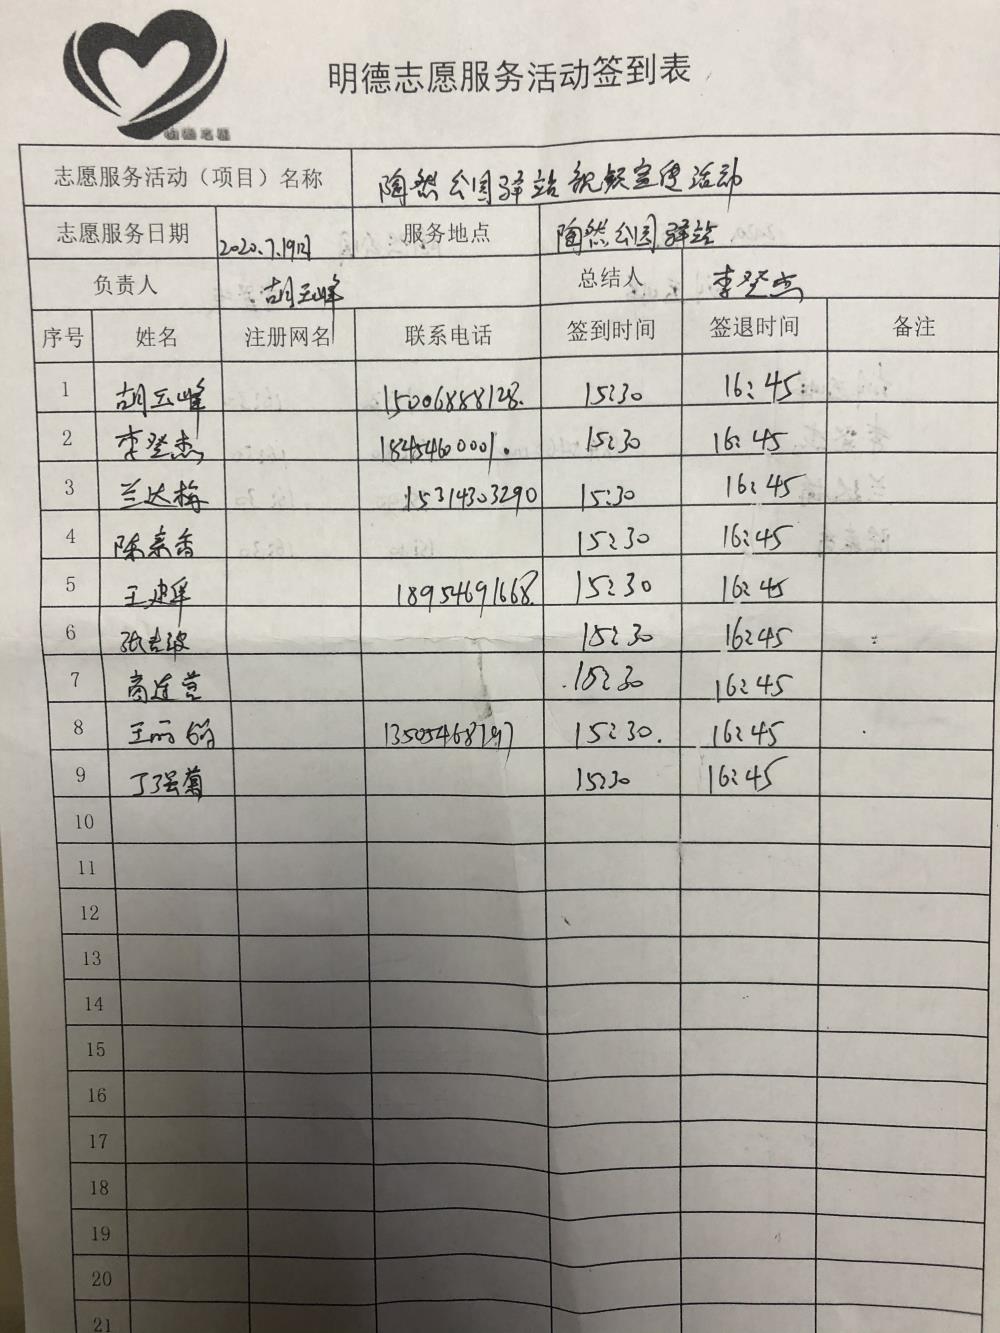 明德志愿
明德志愿服务活动签到表
志愿服务活动（项目）名称 陶然公园驿站视频宣传活动
志愿服务日期 2020.7.19日 服务地点 陶然公园驿站
负责人 胡玉峰 总结人 李登杰
序号 姓名 注册网名 联系电话 签到时间 签退时间 备注
1 胡玉峰 15006888128. 15:30 16:45
2 李登杰 18454600001. 15:30 16:45
3 兰达梅 15314303290 15:30 16:45
4 陈亲香 15:30 16:45
5 王建军 18954691668. 15:30 16:45
6 张志波 15:30 16:45
7 商连营 15:30 16:45
8 王丽 15:30. 16:45
9 丁强 15:30 16:45
10
11
12
13
14
15
16
17
18
19
20
21